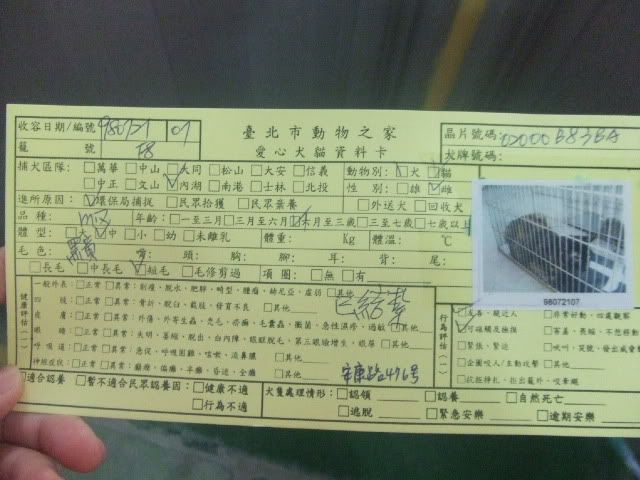 臺北市動物之家
愛心犬貓資料卡
收容日期/編號 980721 07
籠 號 F8
晶片號碼: 0D000B83BA
犬牌號碼:
捕犬區隊: □萬華 □中山 □大同 □松山 □大安 □信義
□中正 □文山 ☑內湖 □南港 □士林 □北投
動物別: ☑犬 □貓
性 別: □雄 ☑雌
進所原因: ☑環保局捕捉 □民眾拾獲 □民眾棄養 □外送犬 □回收犬
品種: mix 年齡: □一至三月 □三月至六月 ☑六月至三歲 □三至七歲 □七歲以上
體型: □大 ☑中 □小 □幼 □未離乳 體重: Kg 體溫: ℃
毛色: 黑黃 嘴: 頭: 胸: 腳: 耳: 背: 尾:
□長毛 □中長毛 ☑短毛 □毛修剪過 項圈: □無 □有
98072107
健康評估(一)
一般外表: □正常 □異常: 創瘦、脫水、肥胖、畸型、腫瘤、幼尼亞、虛弱 □其他
四 肢: □正常 □異常: 骨折、脫臼、截肢、發育不良 □其他
已結紮
皮 膚: □正常 □異常: 外傷、外寄生蟲、禿毛、疥癬、毛囊蟲、黴菌、急性濕疹、過敏 □其他
眼 睛: □正常 □異常: 失明、萎縮、脫出、白內障、眼瞼脫毛、第三眼瞼增生、眼屎 □其他
呼吸道: □正常 □異常: 急促、呼吸困難、咳嗽、流鼻膿 □其他
神經症狀: □正常 □異常: 癲癇、偏癱、半癱、昏迷、全癱 □其他
安康路476號
行為評估(一)
☑友善、親近人 □非常好動、四處觀察
☑可碰觸及檢撲 □害羞、畏縮、不想移動
□緊張、緊迫 □吠叫、哭號、發出威脅
□企圖咬人/主動攻擊 □其他
□抗拒掙扎、拒出籠外、咬牽繩
□適合認養 □暫不適合民眾認養因: □健康不適
□行為不適
犬隻處理情形: □認領 □認養 □自然死亡
□逃脫 □緊急安樂 □逾期安樂